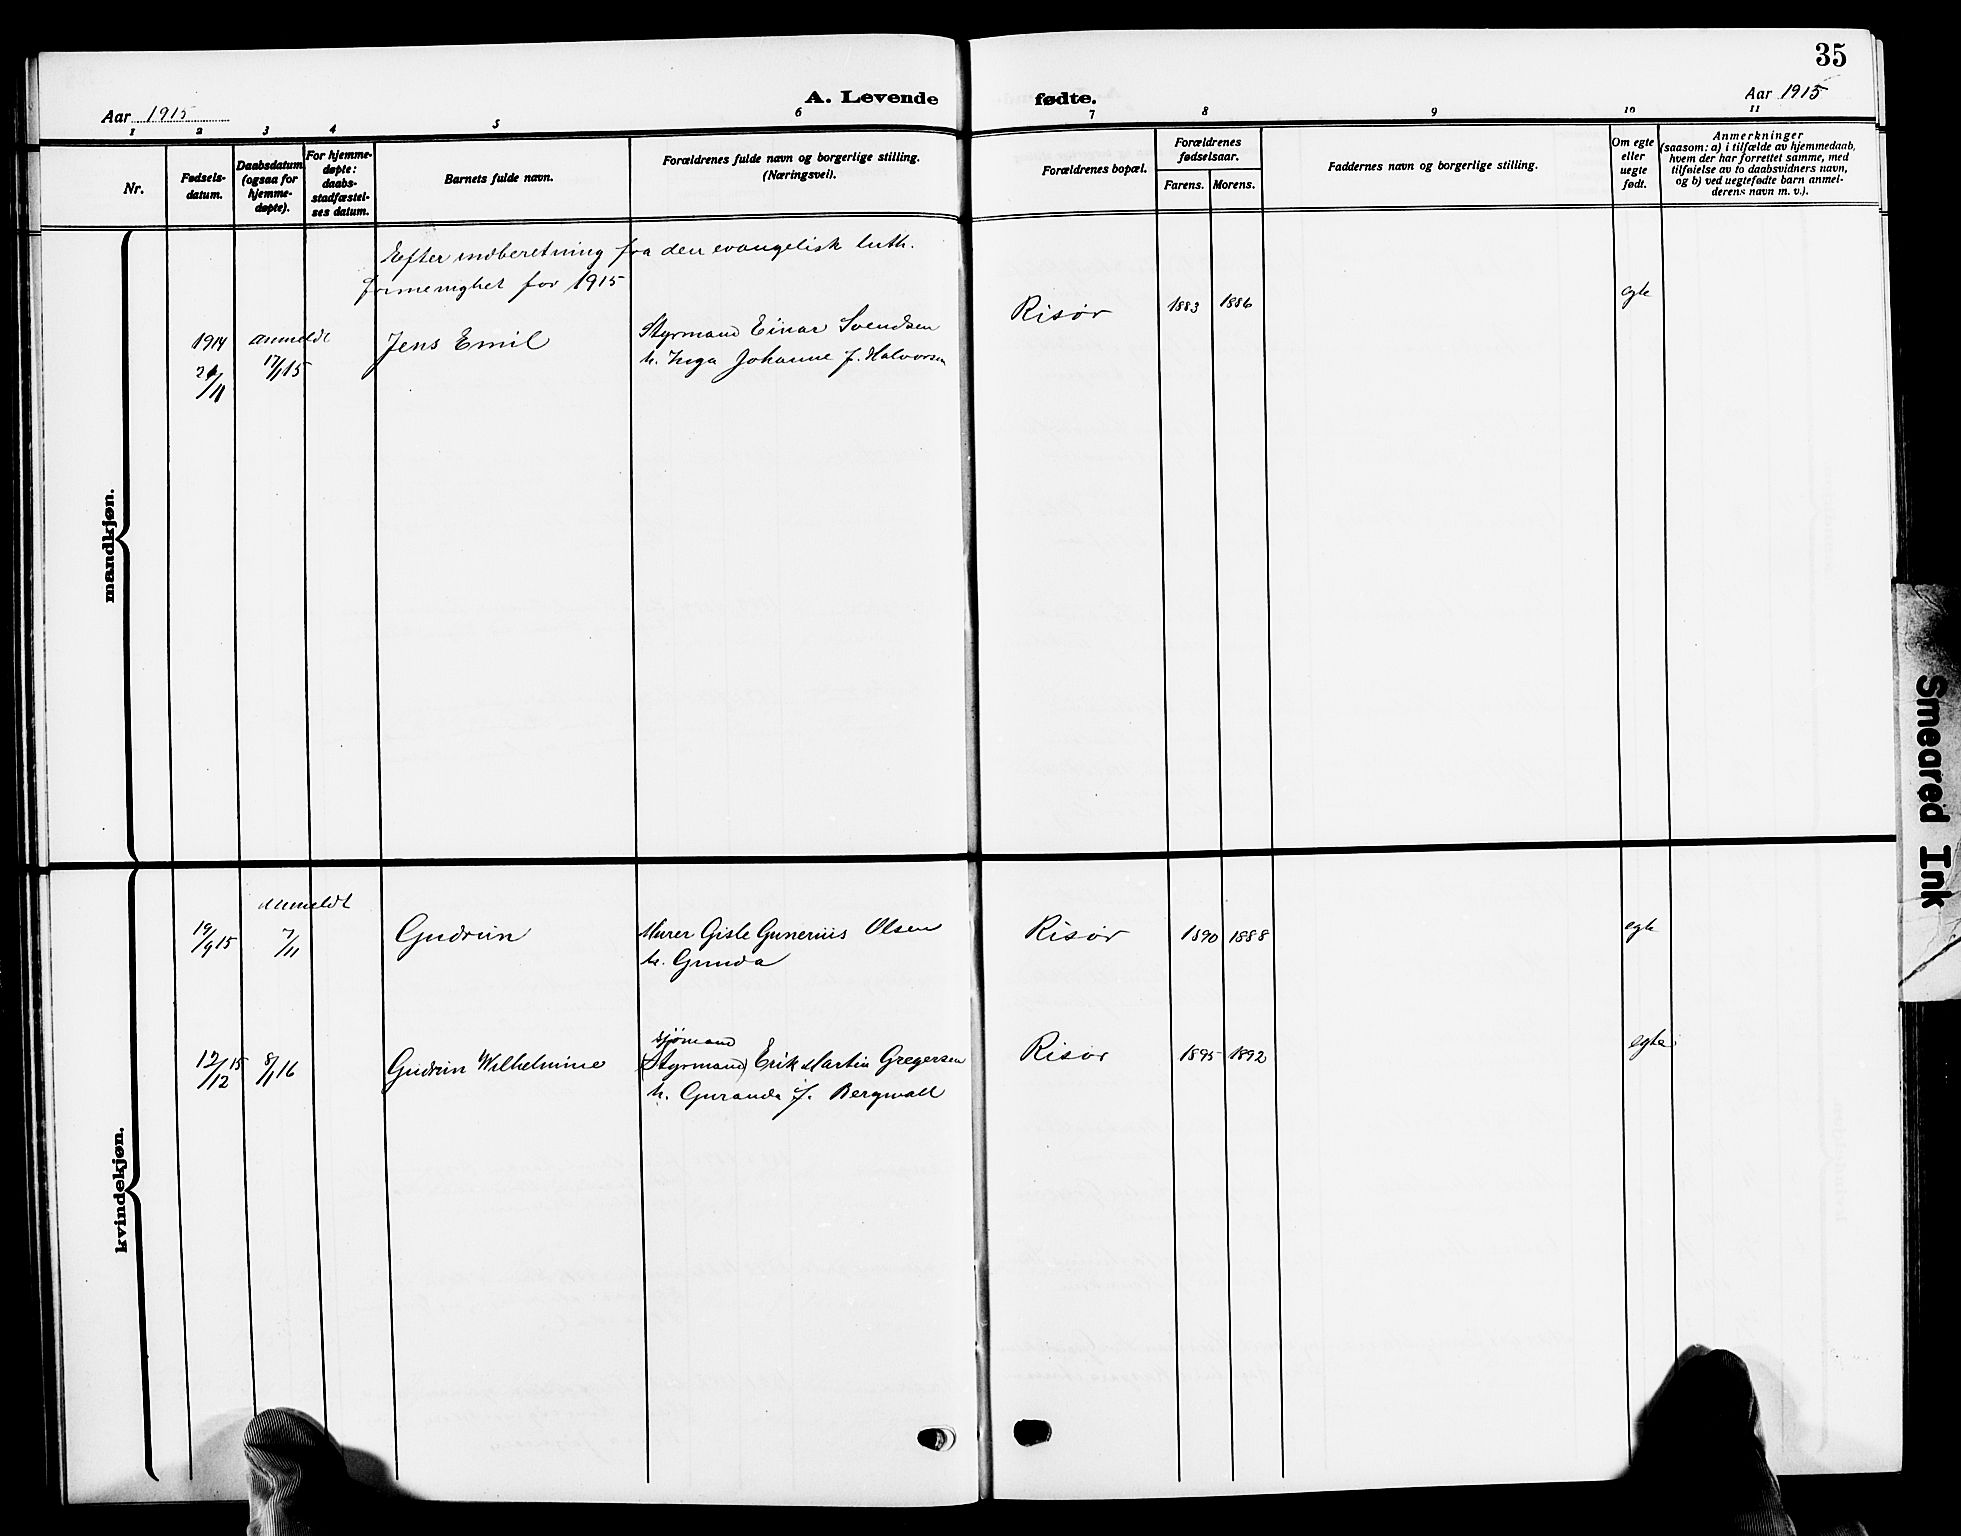 35
Aar 1915
A. Levende
fødte.
Aar 1915
1 2 3 4 5 6 7 8 9 10 11
Nr.
Fødsels-
datum.
Daabsdatum
(ogsaa for
hjemme-
døpte).
For hjemme-
døpte:
daabs-
stadfæstel-
ses datum.
Barnets fulde navn.
Forældrenes fulde navn og borgerlige stilling.
(Næringsvei).
Forældrenes bopæl.
Forældrenes
fødselsaar.
Farens. Morens.
Faddernes navn og borgerlige stilling.
Om egte
eller
uegte
født.
Anmerkninger
(saasom: a) i tilfælde av hjemmedaab,
hvem der har forrettet samme, med
tilføielse av to daabsvidners navn,
og b) ved uegtefødte barn anmel-
derens navn m. v.).
mandkjøn.
Efter indberetning fra den evangelisk luth.
frimenighet for 1915
1914 anmeldt Jens Emil Styrmand Einar Svendsen Risör 1883 1886 egte
/11 17/1 15 h. Inga Johanne f. Halvorsen
kvindekjøn.
anmeldt
19/9 15 7/11 Gudrun Murer Gisle Gunerius Olsen Risör 1890 1888 egte
h. Gunda
sjömand
12/12 15 8/1 16 Gudrun Wilhelmine (Styrmand) Erik Martin Gregersen Risör 1895 1892 egte
h. Guranda f. Bergwall
Smeared Ink